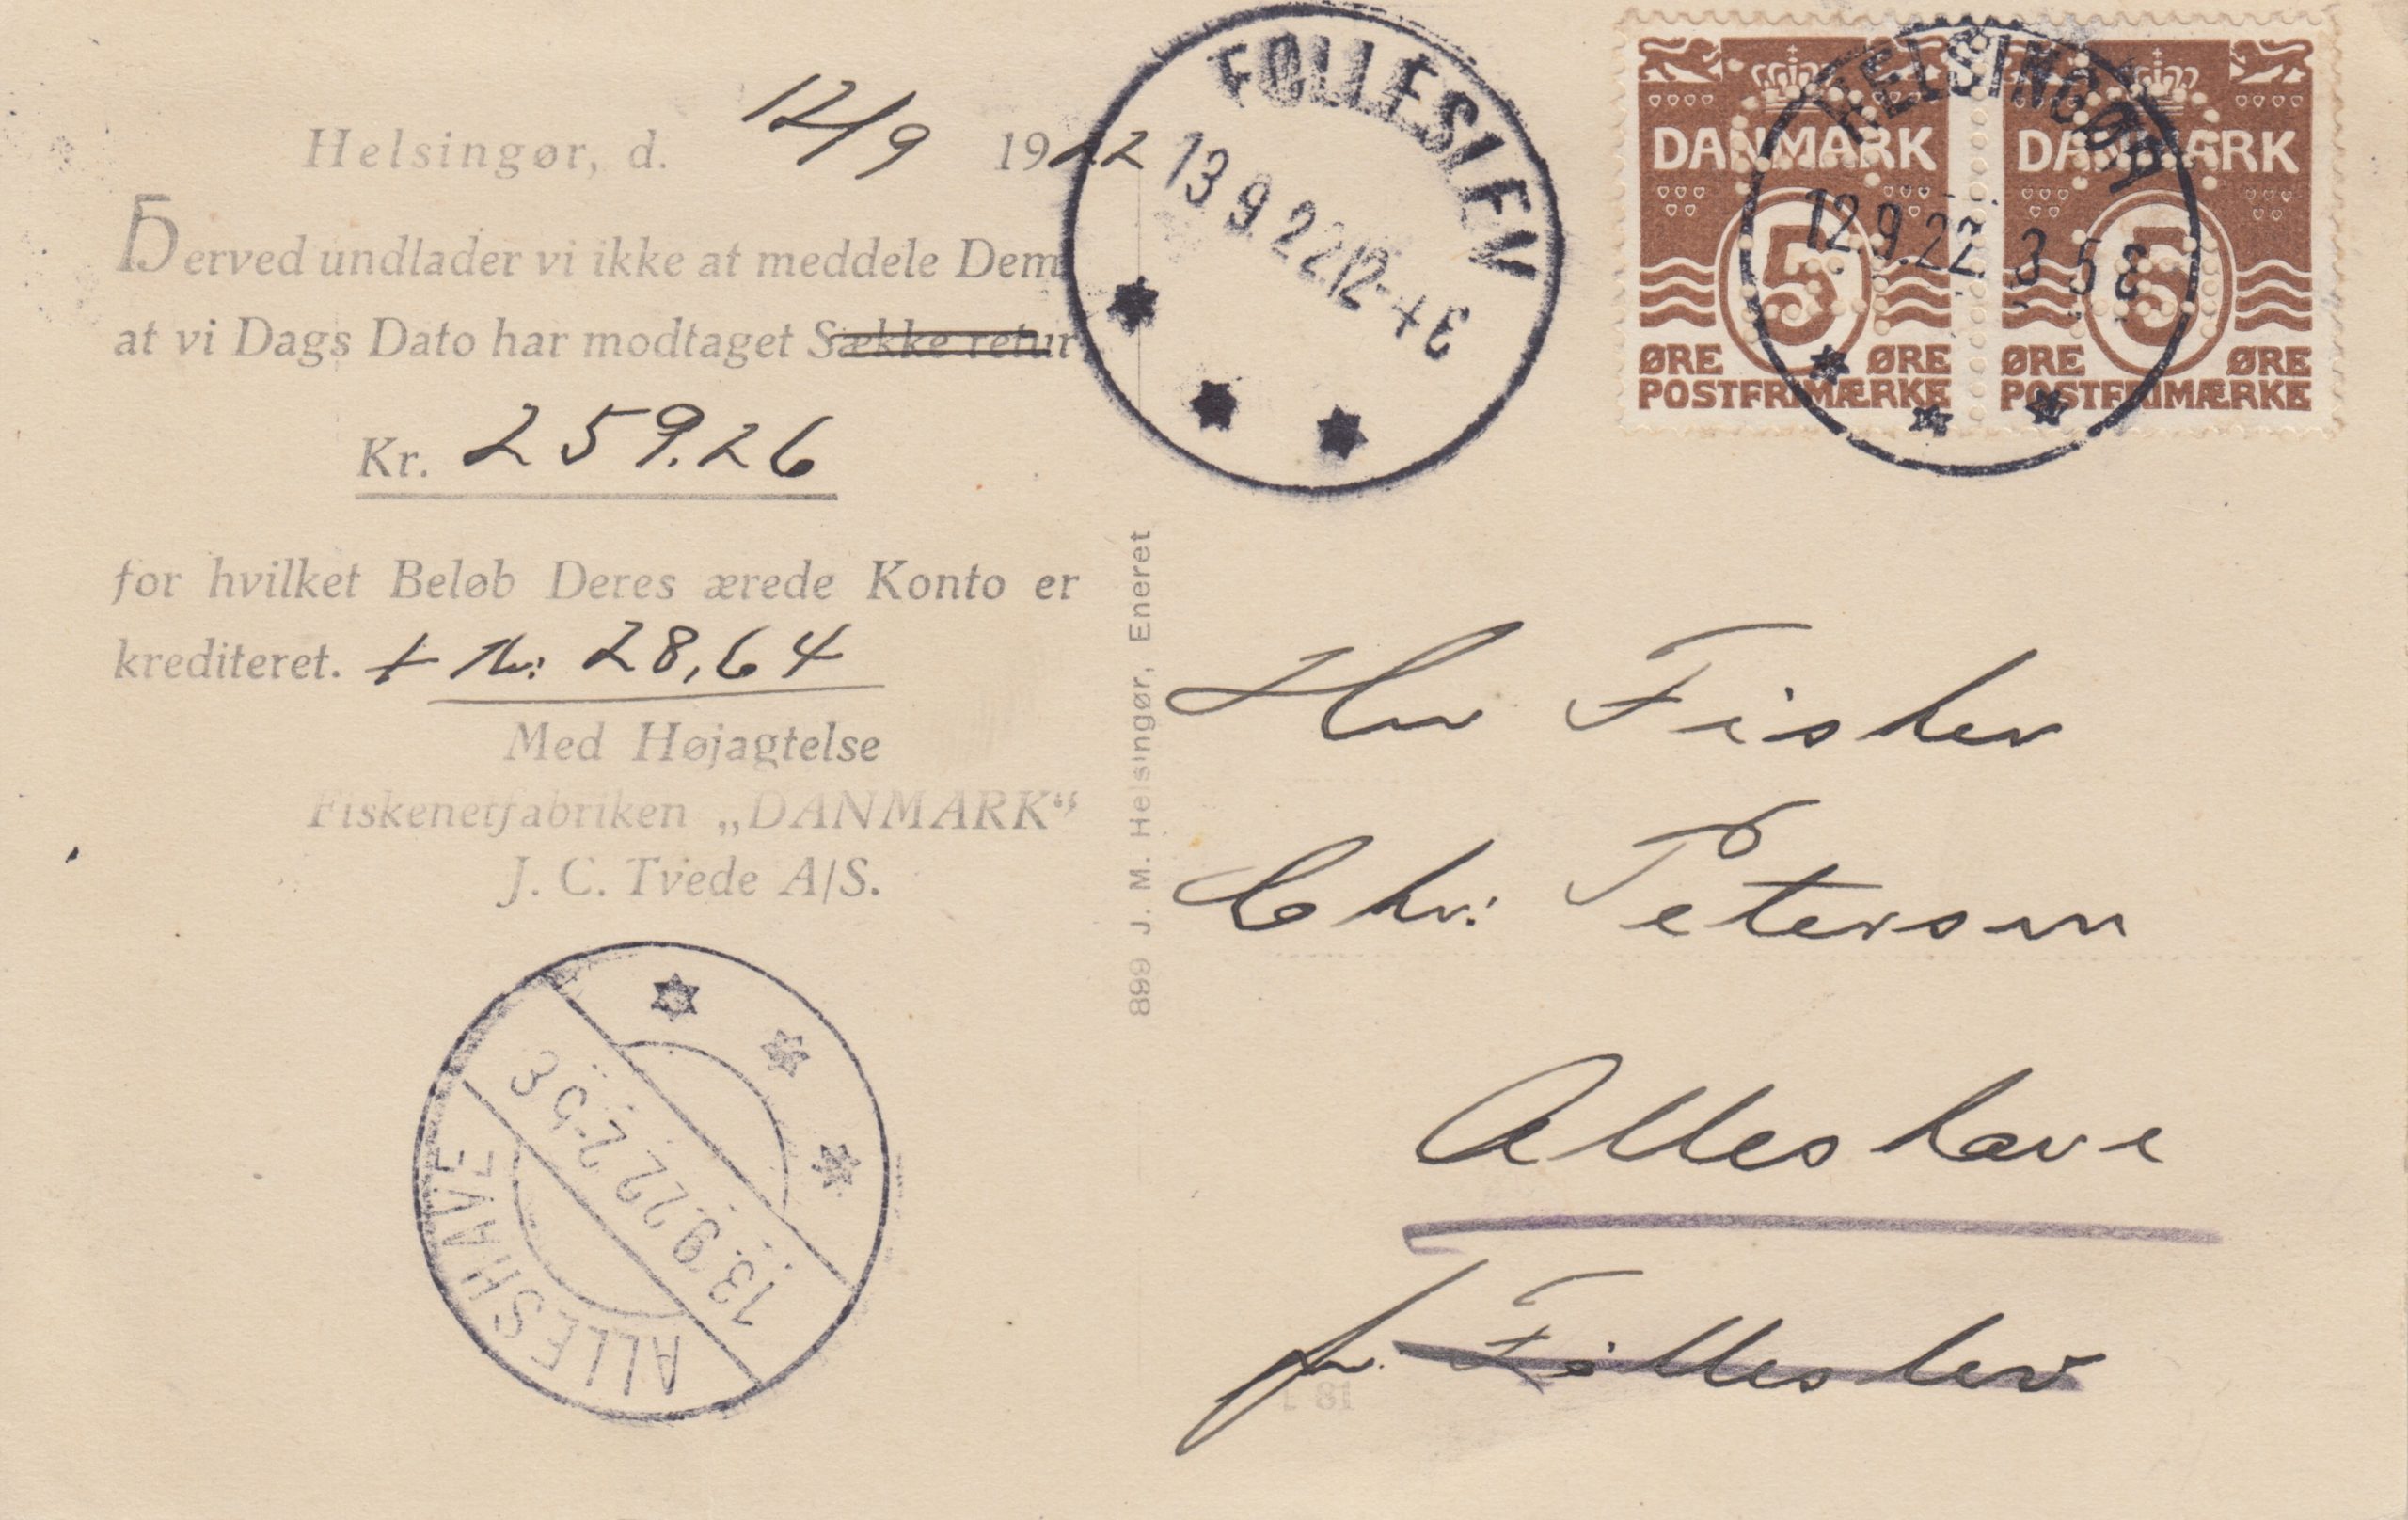 Helsingør, d. 12/9 1922
Herved undlader vi ikke at meddele Dem
at vi Dags Dato har modtaget Sække retur
Kr. 259.26
for hvilket Beløb Deres ærede Konto er
krediteret. + Kr: 28,64
Med Højagtelse
Fiskenetfabriken „DANMARK“
J. C. Tvede A/S.
ALLESHAVE
13.9.22 2-5 E
899 J. M. Helsingør, Eneret
FØLLESLEV
13 9.22 12-4 E
DANMARK
5
ØRE ØRE
POSTFRIMÆRKE
DANMARK
5
ØRE ØRE
POSTFRIMÆRKE
HELSINGØR
12.9.22. 3-5 E
Hr Fisker
Chr: Petersen
Alleshave
pr. Følleslev
81